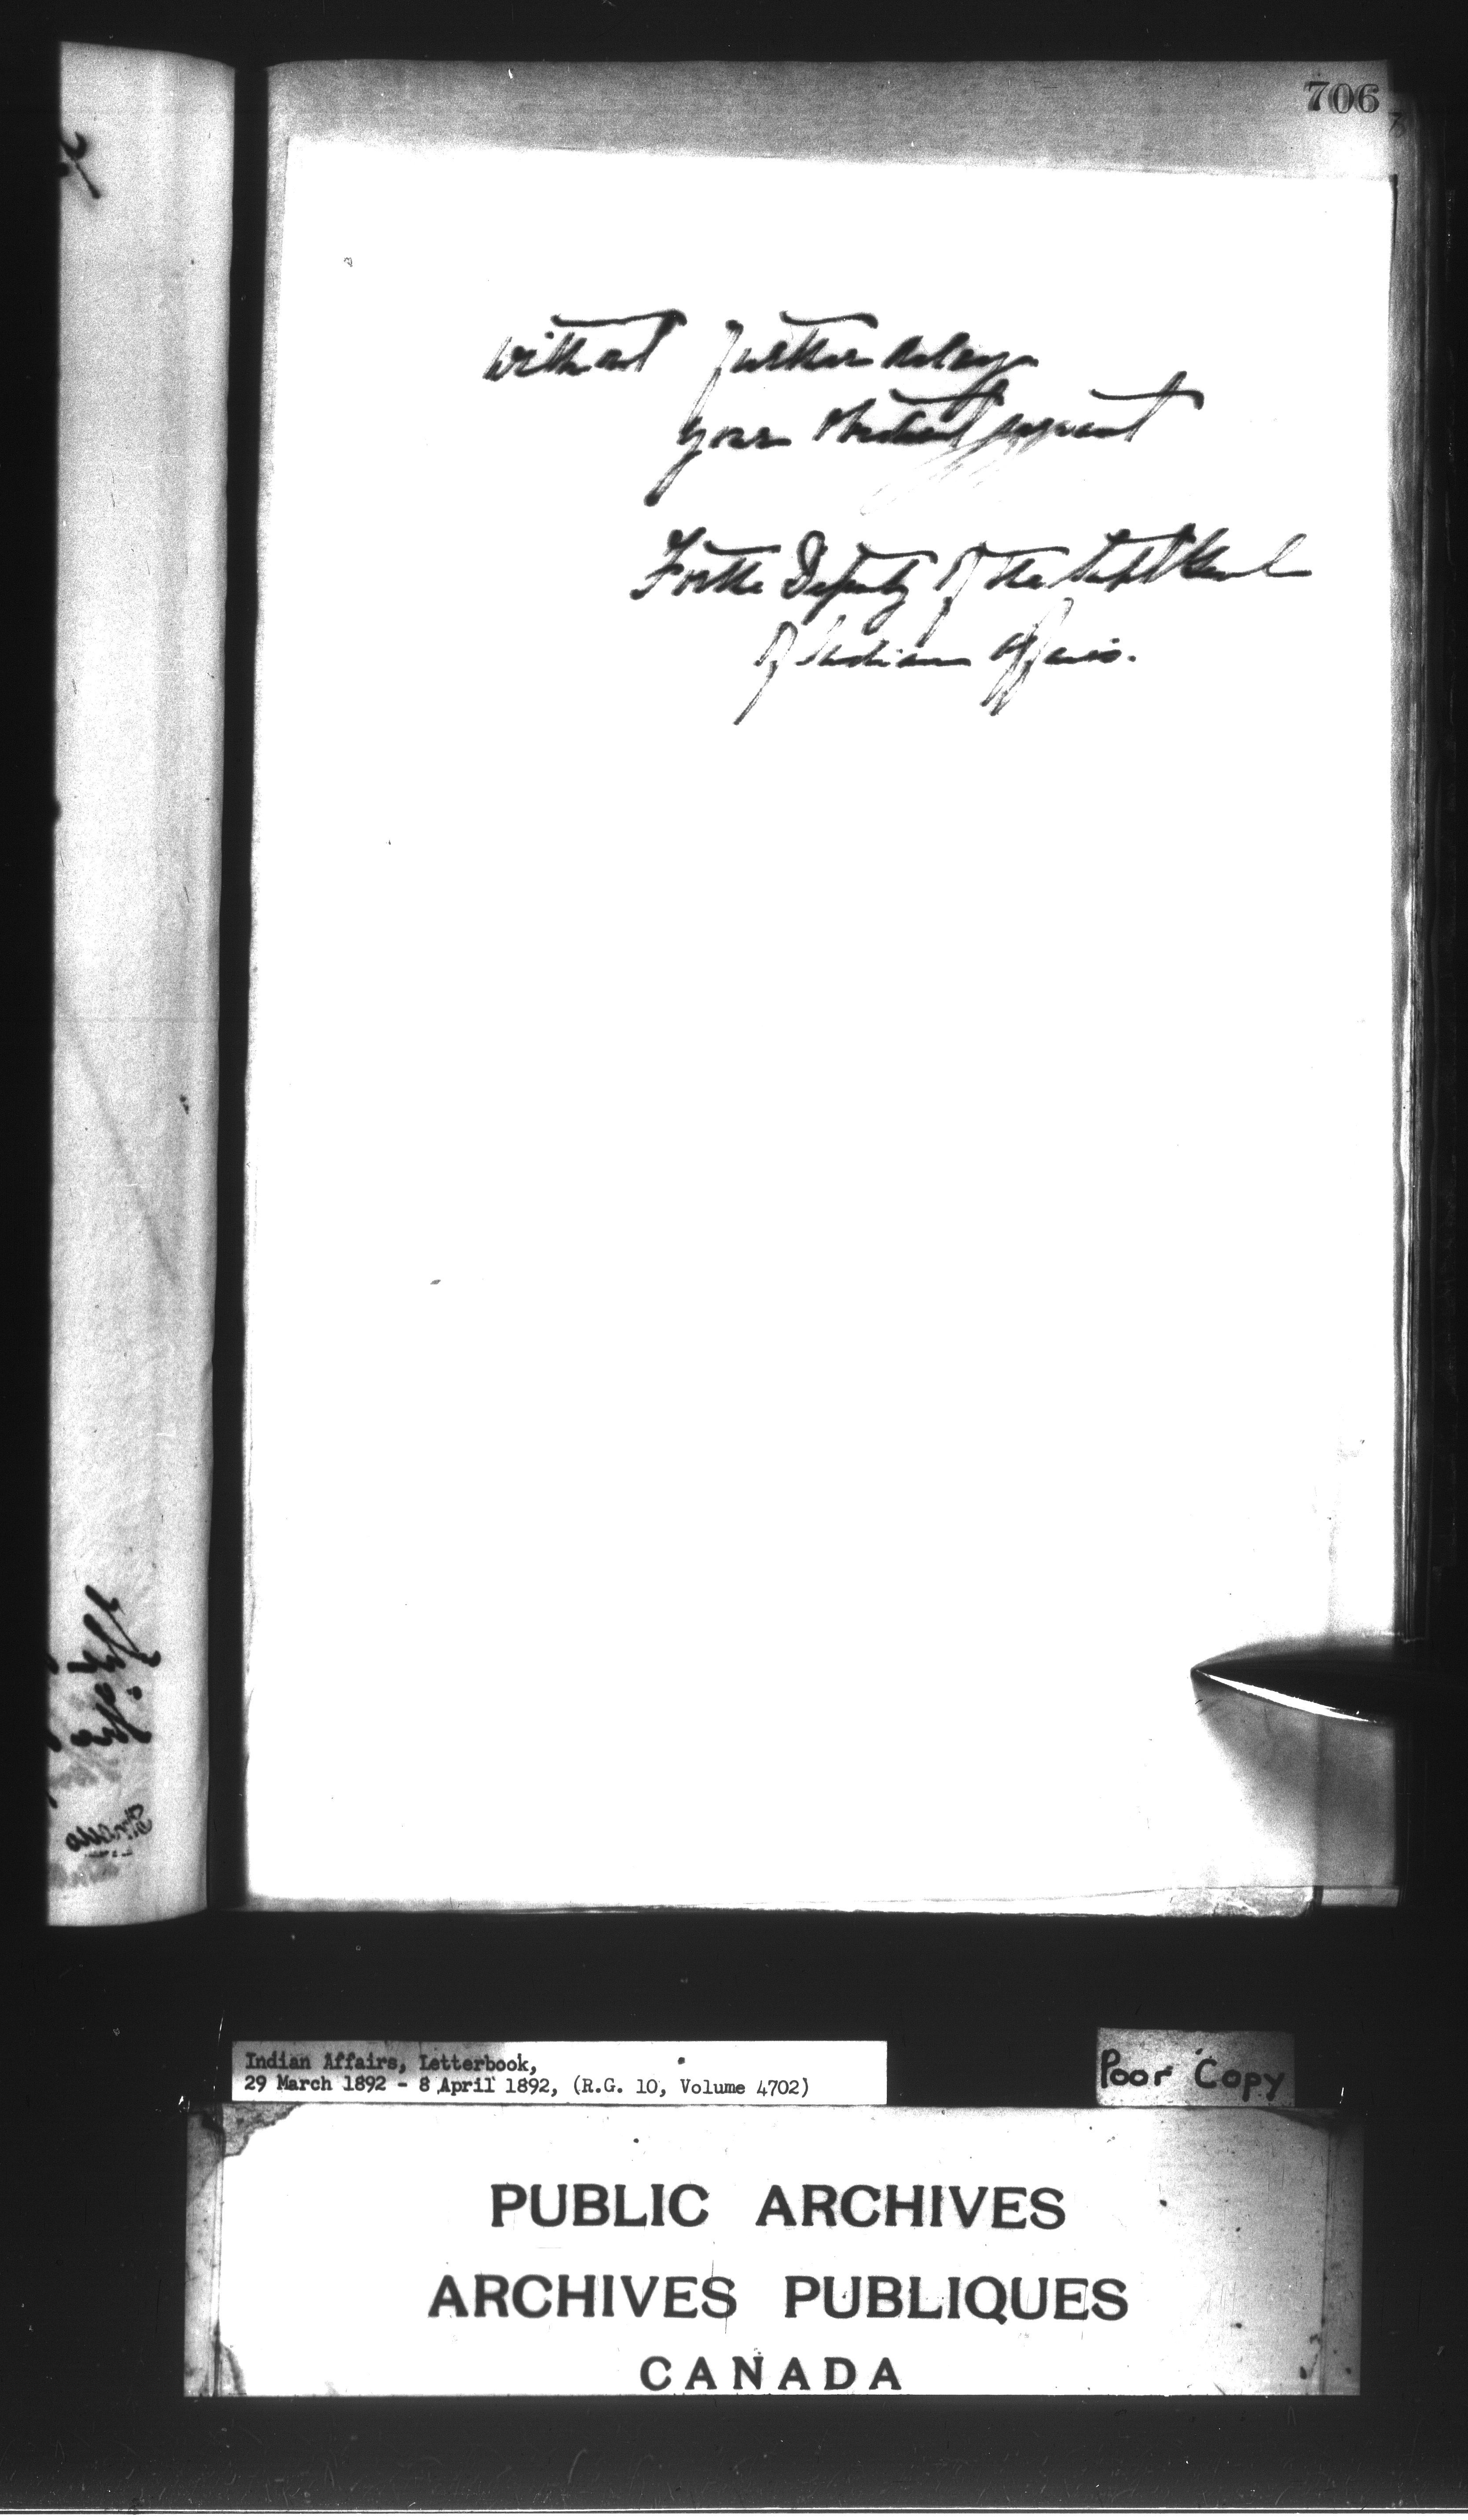 706
without further delay
Your obedient servant
For the Deputy of the Supt Genl
of Indian Affairs.
Indian Affairs, Letterbook,
29 March 1892 - 8 April 1892, (R.G. 10, Volume 4702)
Poor Copy
PUBLIC ARCHIVES
ARCHIVES PUBLIQUES
CANADA